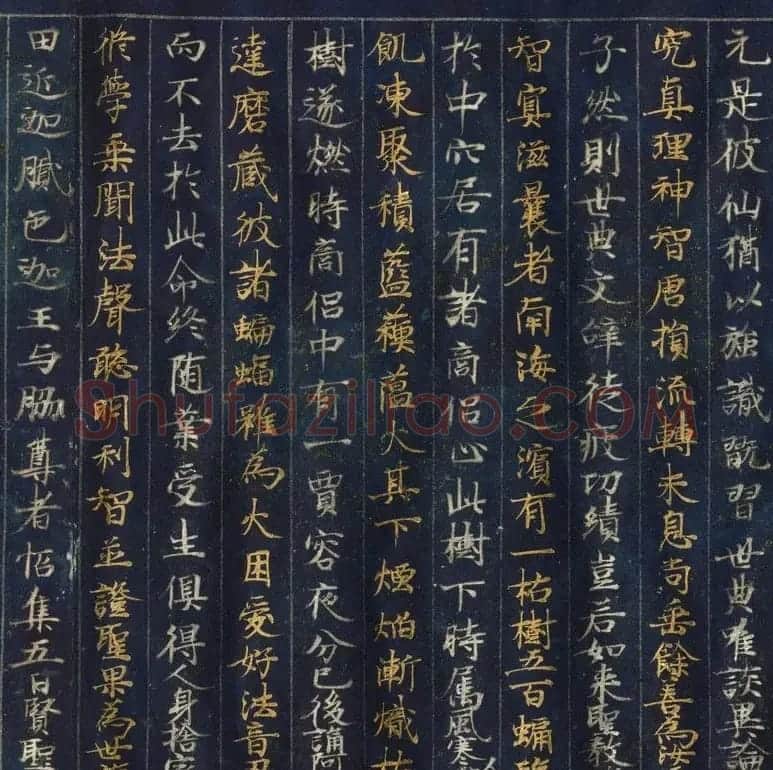 元是彼仙猶以強識翫習世典唯談異論
究真理神智唐損流轉未息尚乗餘善為汝
子然則世典文辞徒疲功績豈若如来聖教
智寘滋曩者南海之濱有一枯樹五百蝙
於中穴居有諸商侶止此樹下時属風寒
飢凍聚積藍蘓藴火其下煙焰漸熾枯
樹遂燃時商侶中有一賈客夜分已後誦
達磨蔵彼諸蝙蝠雖為火困愛好法音忍
而不去於此命終随業受生俱得人身捨家
修學乗聞法聲聡明利智並證聖果為世
田近迦膩色迦王与脇尊者招集五百賢聖
Shufaziliao.COM